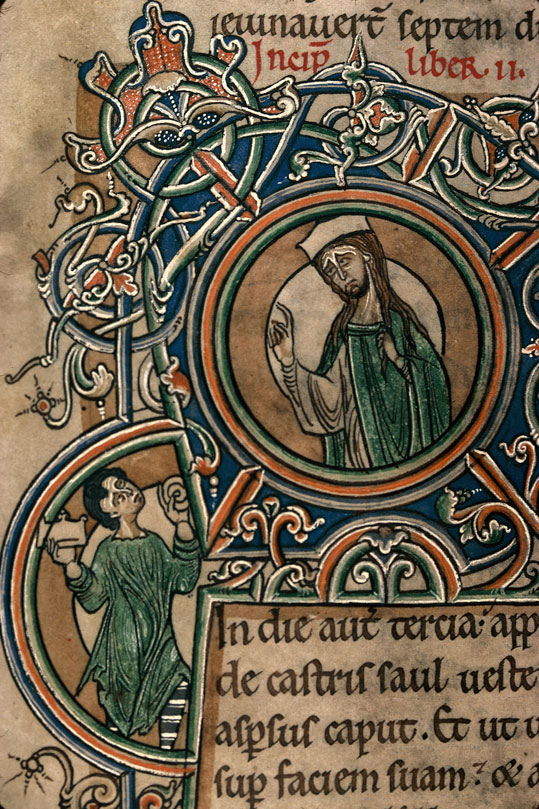 ieiunauert̄ septem di
Incip̄ liber. ii.
In die aut̄ tercia: app
de castris saul ueste
asp̄sus caput. Et ut u
sup̄ faciem suam? & a